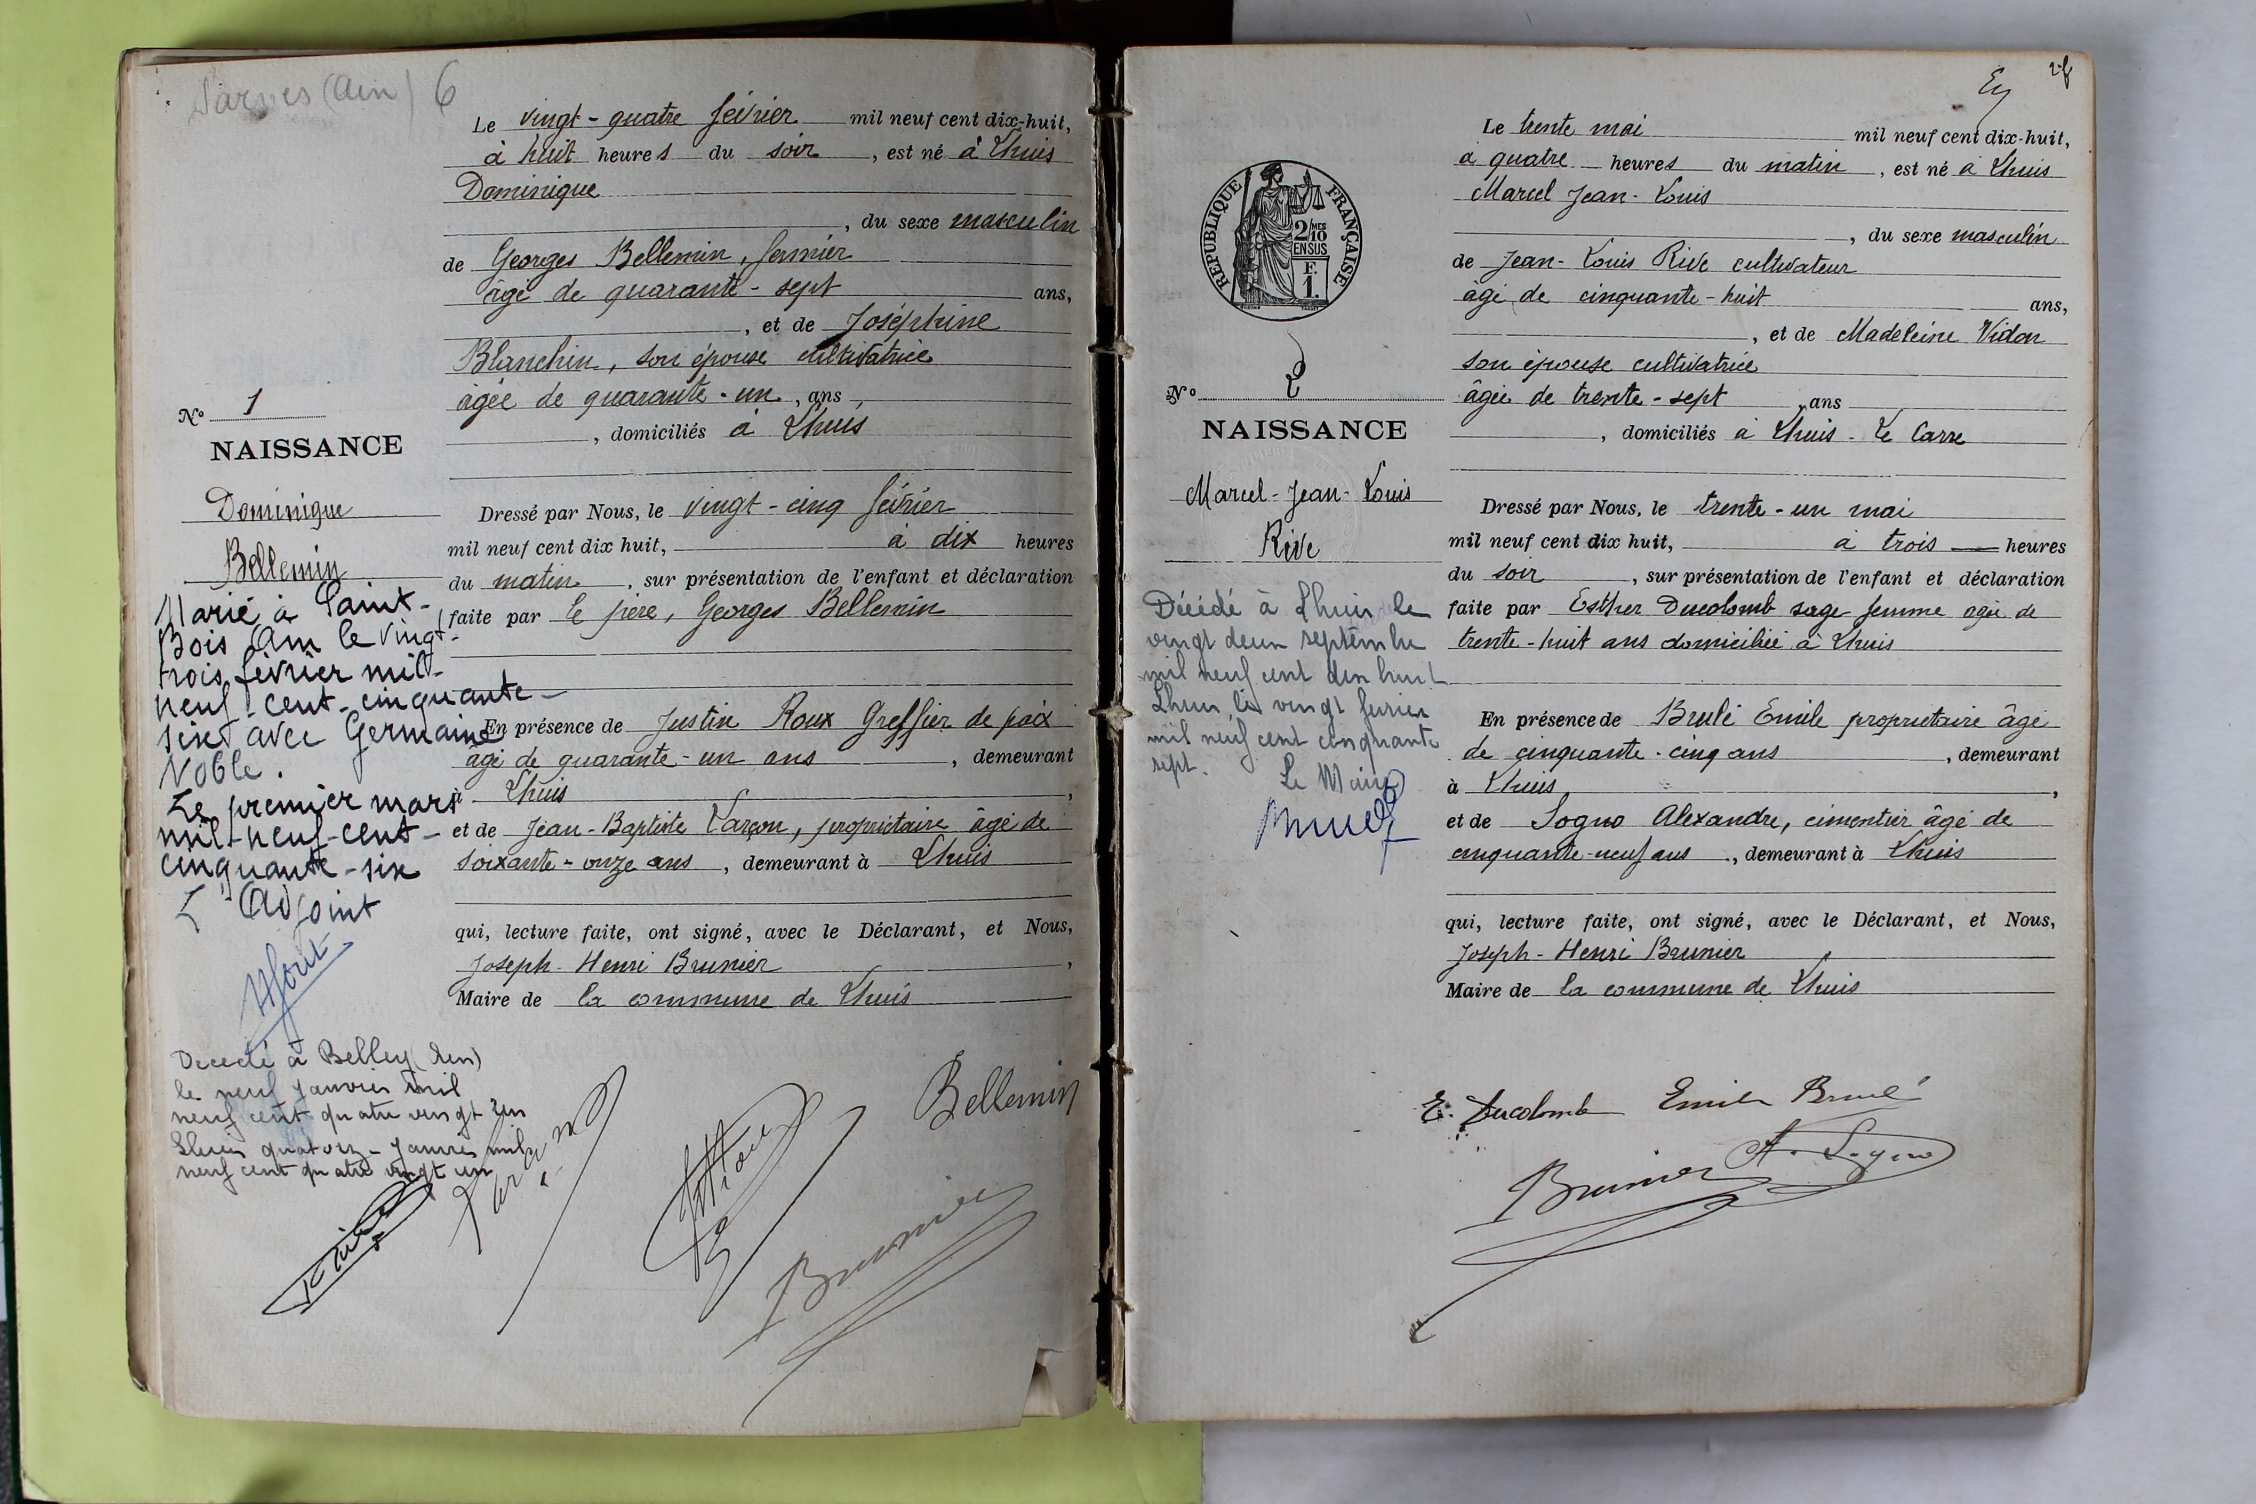 (Ain) 6
Le vingt-quatre février mil neuf cent dix-huit,
à huit heures du soir, est né à Lhuis
Dominique
, du sexe masculin
de Georges Bellemin, fermier
âgé de quarante-sept ans,
, et de Joséphine
Blanchin, son épouse cultivatrice
âgée de quarante-un, ans,
, domiciliés à Lhuis
Nº 1
NAISSANCE
Dominique
Bellemin
Marié à Saint-
Bois Ain le vingt-
trois février mil-
neuf-cent-cinquante-
six avec Germaine
Noble.
Le premier mars
mil-neuf-cent-
cinquante-six
L'Adjoint
Décédé à Belley (Ain)
le neuf janvier mil
neuf cent quatre vingt un
Lhuis quatorze janvier mil
neuf cent quatre vingt un
Dressé par Nous, le vingt-cinq février
mil neuf cent dix huit, à dix heures
du matin, sur présentation de l'enfant et déclaration
faite par le père, Georges Bellemin
En présence de Justin Roux Greffier de paix
âgé de quarante-un ans, demeurant
à Lhuis,
et de Jean-Baptiste Varçon, propriétaire âgé de
soixante-onze ans, demeurant à Lhuis
qui, lecture faite, ont signé, avec le Déclarant, et Nous,
Joseph-Henri Brunier,
Maire de la commune de Lhuis
Bellemin
Brunier
Le trente mai mil neuf cent dix-huit,
à quatre heures du matin, est né à Lhuis
Marcel Jean-Louis
, du sexe masculin
de Jean-Louis Rive cultivateur
âgé de cinquante-huit ans,
, et de Madeleine Vidon
son épouse cultivatrice
âgée de trente-sept, ans
, domiciliés à Lhuis-Le Carre
RÉPUBLIQUE FRANÇAISE
2/10MES
EN SUS
F.
1.
Nº 2
NAISSANCE
Marcel-Jean-Louis
Rive
Décédé à Lhuis le
vingt deux septembre
mil neuf cent dix huit
Lhuis le vingt fevrier
mil neuf cent cinquante
sept.
Le Maire
Dressé par Nous, le trente-un mai
mil neuf cent dix huit, à trois heures
du soir, sur présentation de l'enfant et déclaration
faite par Esther Ducolomb sage-femme agée de
trente-huit ans domiciliée à Lhuis
En présence de Brulé Emile propriétaire âgé
de cinquante-cinq ans, demeurant
à Lhuis,
et de Sogno Alexandre, cimentier âgé de
cinquante-neuf ans, demeurant à Lhuis
qui, lecture faite, ont signé, avec le Déclarant, et Nous,
Joseph-Henri Brunier
Maire de la commune de Lhuis
E. Ducolomb Emile Brulé
A. Sogno
Brunier